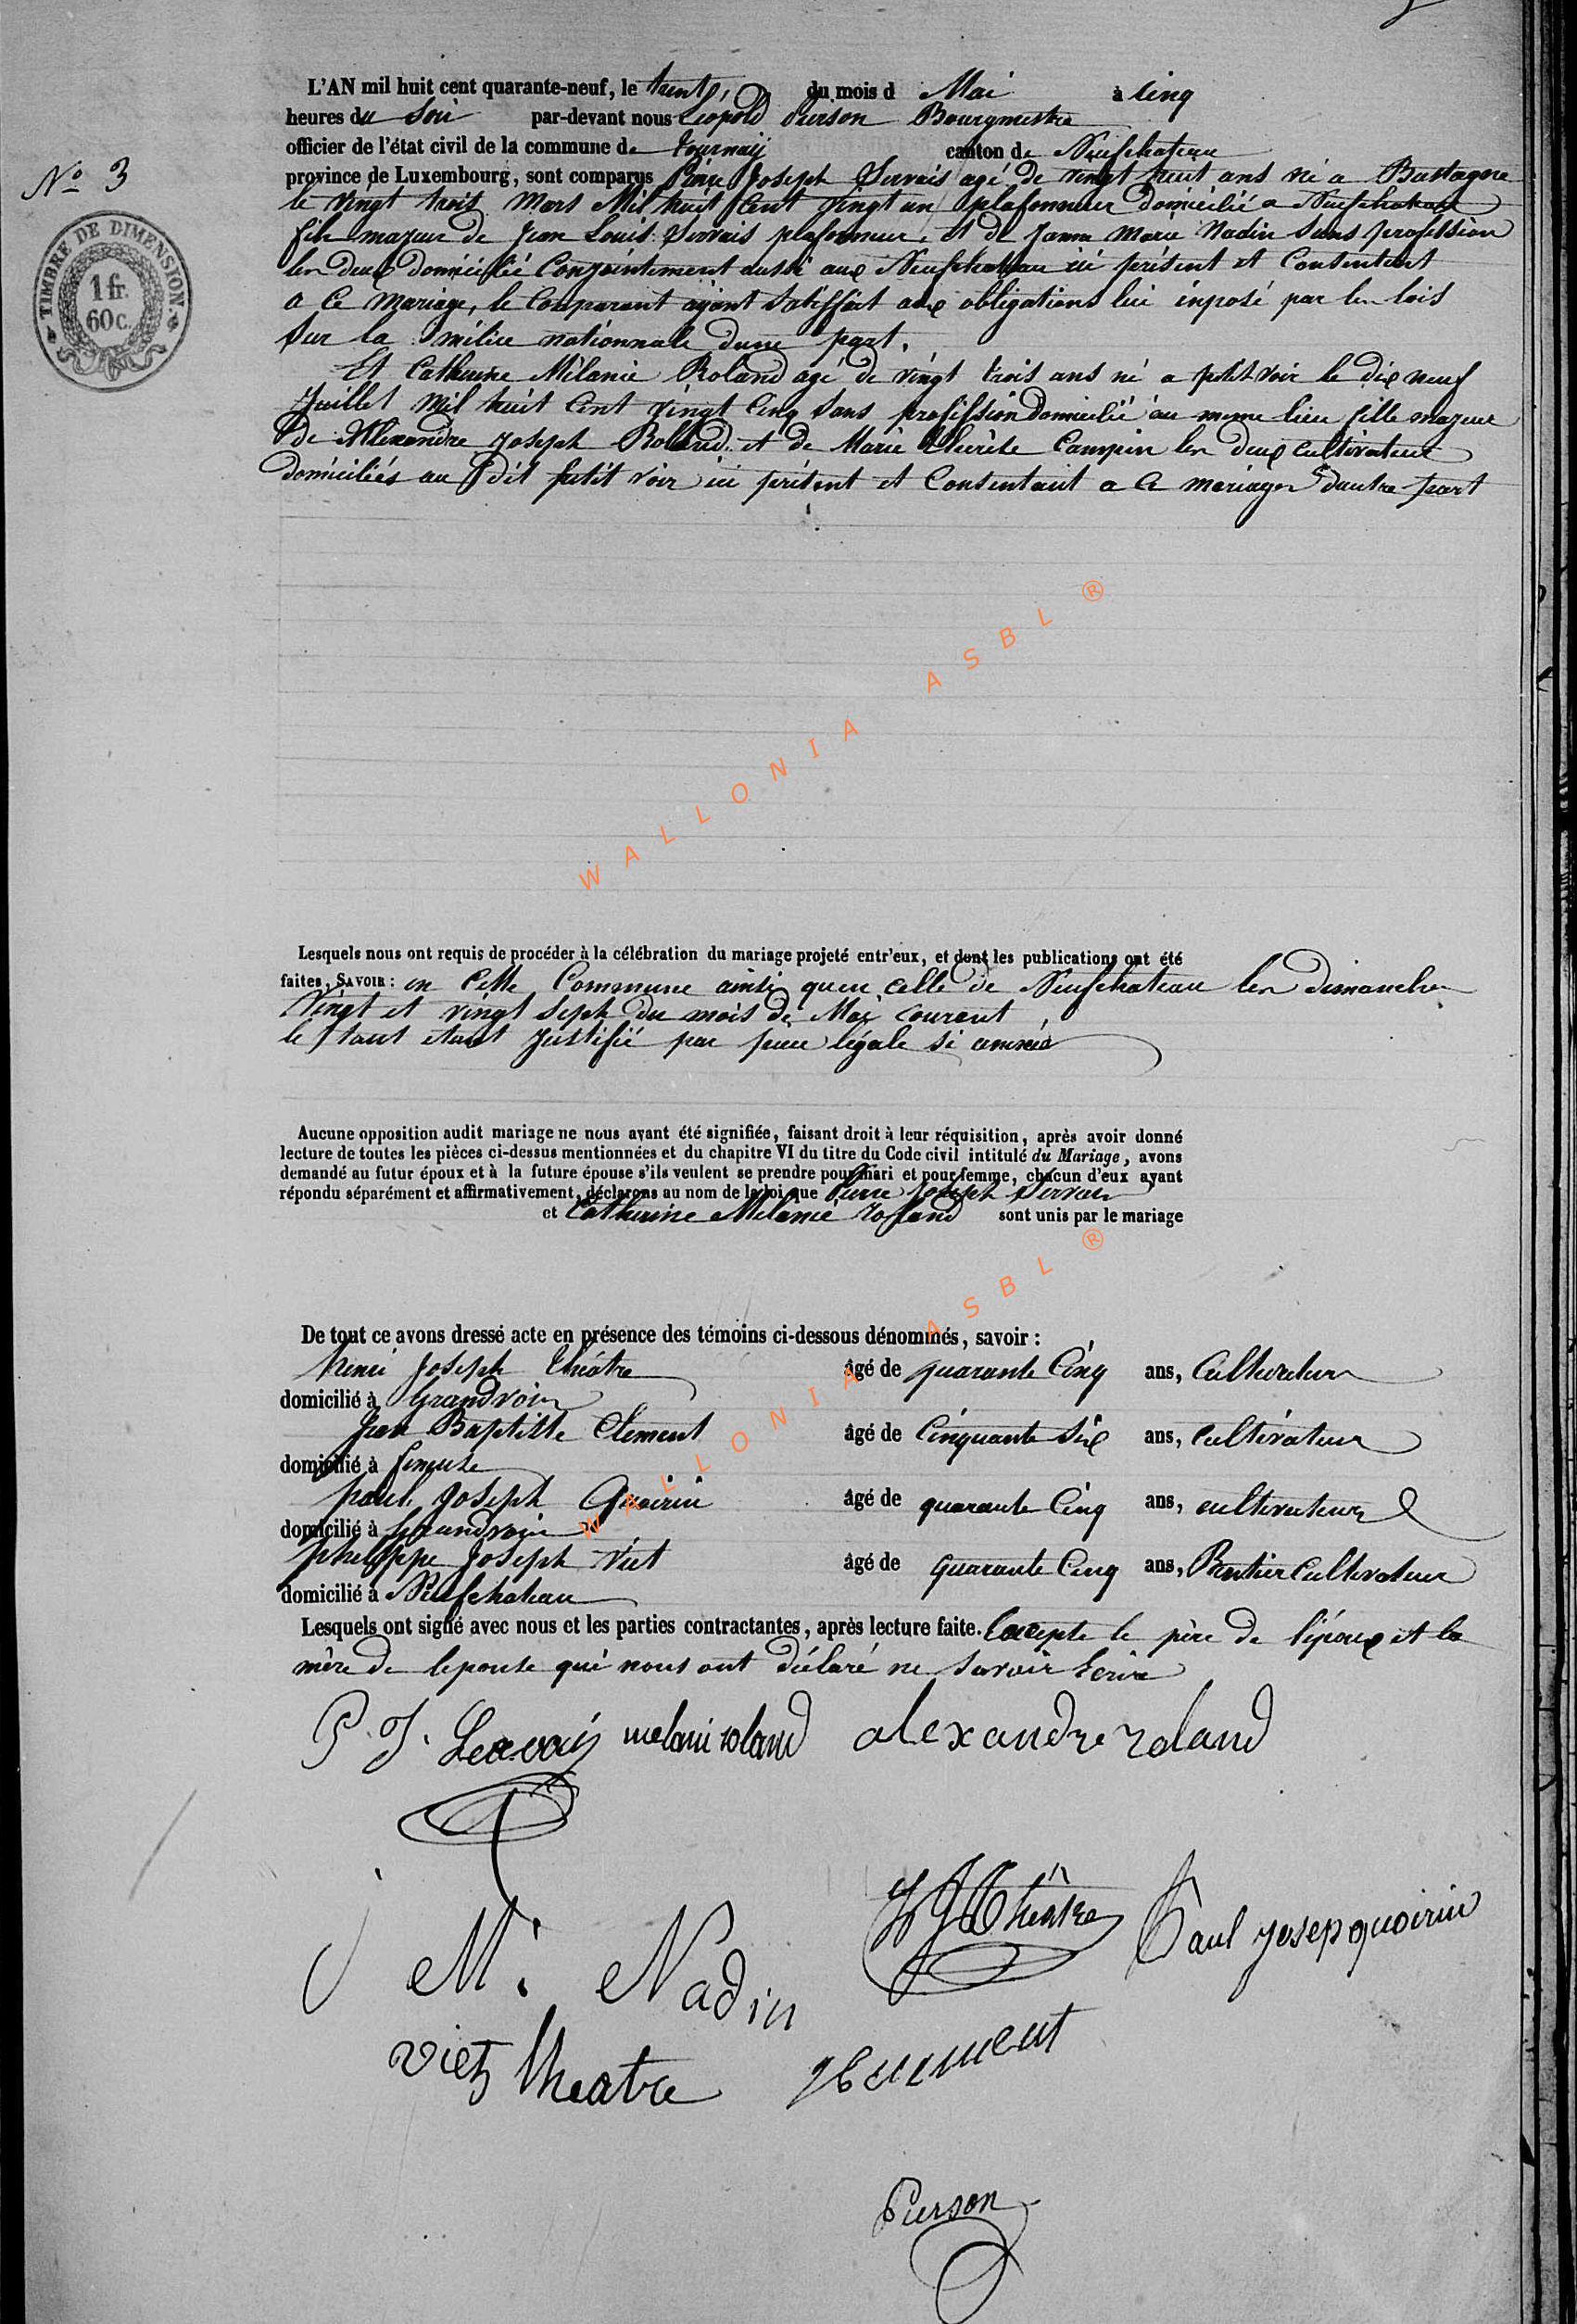 L'AN mil huit cent quarante-neuf, le trente, du mois d Mai à Cinq
heures du Soir par-devant nous Léopold Pierson Bourgmestre
officier de l'état civil de la commune de tournaij canton de Neufchateau
No 3
province de Luxembourg, sont comparus Pierre Joseph Servais agé de vingt huit ans né a Bastagne
le vingt trois Mars Mil huit Cent vingt un plafonneur domicilié a Neufchateau
fils majeur de Jean Louis Servais plafonneur, et de Janna Marie Nadin Sans profession
les deux domicilié Conjointement aussi aux Neufchateau ici présent et Consentent
a Ce Mariage, le Comparant ayant Satisffait aux obligations lui inposé par les lois
Sur la milice nationnale dune part.
Et Catherine Mélanie Roland agé de vingt trois ans né a petit voir le dix neuf
Juillet Mil huit Cent vingt Cinq Sans profission Domicilié au meme lieu fille majeur
de Alexandre Joseph Rolland et de Marie Campin les deux cultivateur
domiciliés au dit petit voir ici présent et Consentant a Ce mariage dautre part
TIMBRE DE DIMENSION.
1 fr.
60 c.
WALLONIA ASBL ®
Lesquels nous ont requis de procéder à la célébration du mariage projeté entr'eux, et dont les publications ont été
faites, SAVOIR : en Cette Commune ainsi quen celle de Neufchateau les dimanche
Vingt et vingt Sept du mois de Mai Courant
le tout étant Justifié par piece légale si
Aucune opposition audit mariage ne nous ayant été signifiée, faisant droit à leur réquisition, après avoir donné
lecture de toutes les pièces ci-dessus mentionnées et du chapitre VI du titre du Code civil intitulé du Mariage, avons
demandé au futur époux et à la future épouse s'ils veulent se prendre pour mari et pour femme, chacun d'eux ayant
répondu séparément et affirmativement, déclarons au nom de la loi que Pierre Joseph Servais
et Catherine Melanie Rolland sont unis par le mariage
WALLONIA ASBL ®
De tout ce avons dressé acte en présence des témoins ci-dessous dénommés, savoir :
henri Joseph théâtre âgé de quarante Cinq ans, Cultivateur
domicilié à Grandvoir
Jean Baptiste Clement âgé de Cinquante Six ans, cultivateur
domicilié à
paul Joseph Quoirin âgé de quarante Cinq ans, cultivateur
domicilié à Grandvoir
philippe Joseph Viet âgé de quarante Cinq ans, Rentier Cultivateur
domicilié à Neufchateau
Lesquels ont signé avec nous et les parties contractantes, après lecture faite. Excepte le père de lépoux et la
mère de lepouse qui nous ont déclaré ne Savoir Ecrire
P. J. Servais melani roland alexandre roland
M. Nadin
H J Théâtre
Paul josep quoirin
viet theatre
Pierson